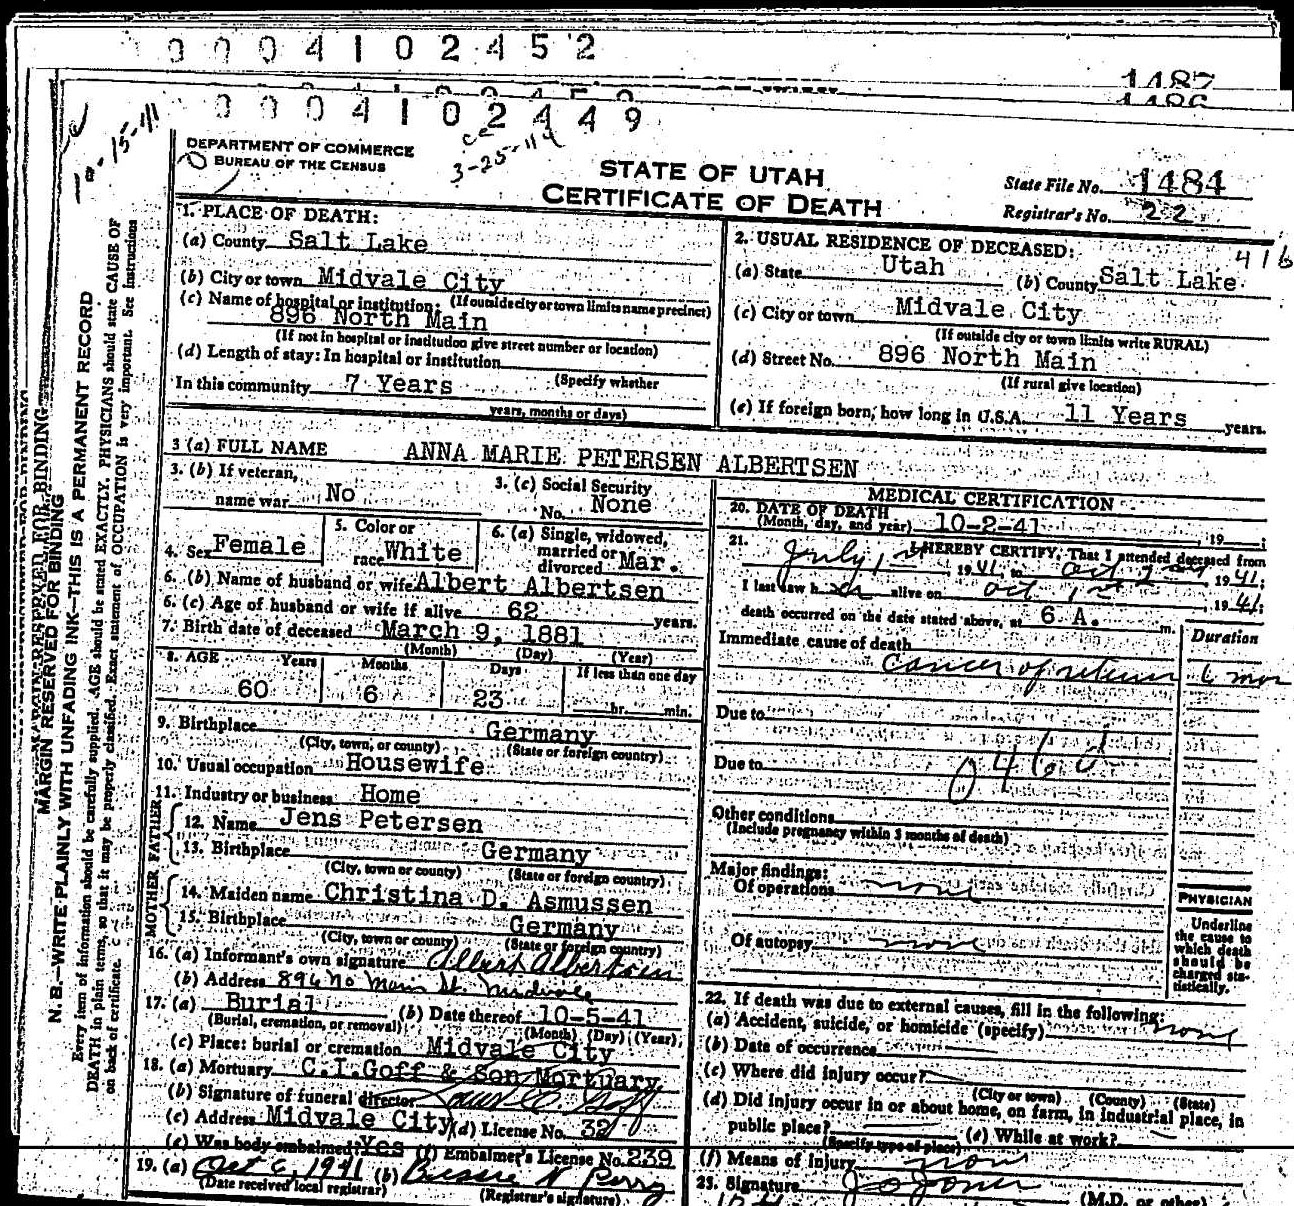 0 0 0 4 1 0 2 4 5 2
1487
1486
0 0 0 4 1 0 2 4 4 9
DEPARTMENT OF COMMERCE
BUREAU OF THE CENSUS
3-25-114
STATE OF UTAH
CERTIFICATE OF DEATH
State File No. 1484
Registrar's No. 22
416
MARGIN RESERVED FOR BINDING
N. B.—WRITE PLAINLY WITH UNFADING INK—THIS IS A PERMANENT RECORD
Every item of information should be carefully supplied. AGE should be stated EXACTLY. PHYSICIANS should state CAUSE OF
DEATH in plain terms, so that it may be properly classified. Exact statement of OCCUPATION is very important. See instructions
on back of certificate.
1. PLACE OF DEATH:
(a) County Salt Lake
(b) City or town Midvale City
(If outside city or town limits name precinct)
(c) Name of hospital or institution:
896 North Main
(If not in hospital or institution give street number or location)
(d) Length of stay: In hospital or institution
In this community 7 Years (Specify whether
years, months or days)
2. USUAL RESIDENCE OF DECEASED:
(a) State Utah (b) County Salt Lake
(c) City or town Midvale City
(If outside city or town limits write RURAL)
(d) Street No. 896 North Main
(If rural give location)
(e) If foreign born, how long in U.S.A. 11 Years years.
3 (a) FULL NAME ANNA MARIE PETERSEN ALBERTSEN
3. (b) If veteran,
name war No
3. (c) Social Security
No. None
4. Sex Female
5. Color or
race White
6. (a) Single, widowed,
married or
divorced Mar.
6. (b) Name of husband or wife Albert Albertsen
6. (c) Age of husband or wife if alive 62 years.
7. Birth date of deceased March 9, 1881
(Month) (Day) (Year)
8. AGE Years Months Days If less than one day
60 6 23 hr. min.
9. Birthplace Germany
(City, town, or county) (State or foreign country)
10. Usual occupation Housewife
11. Industry or business Home
FATHER
12. Name Jens Petersen
13. Birthplace Germany
(City, town or county) (State or foreign country)
MOTHER
14. Maiden name Christina D. Asmussen
15. Birthplace Germany
(City, town or county) (State or foreign country)
16. (a) Informant's own signature Albert Albertsen
(b) Address 896 No Main St. Midvale
17. (a) Burial (b) Date thereof 10-5-41
(Burial, cremation, or removal) (Month) (Day) (Year)
(c) Place: burial or cremation Midvale City
18. (a) Mortuary C.I.Goff & Son Mortuary
(b) Signature of funeral director
(c) Address Midvale City (d) License No. 32
(e) Was body embalmed? Yes (f) Embalmer's License No. 239
19. (a) Oct 6, 1941 (b) Bessie N Perry
(Date received local registrar) (Registrar's signature)
MEDICAL CERTIFICATION
20. DATE OF DEATH
(Month, day, and year) 10-2-41 19
21. I HEREBY CERTIFY, That I attended deceased from
July 1st 1941, to Oct 2nd 1941;
I last saw her alive on Oct 1st, 1941;
death occurred on the date stated above, at 6 A. m.
Immediate cause of death Duration
cancer of uterus 6 mos
Due to
Due to
Other conditions
(Include pregnancy within 3 months of death)
Major findings:
Of operations none
Of autopsy none
PHYSICIAN
Underline
the cause to
which death
should be
charged sta-
tistically.
22. If death was due to external causes, fill in the following:
(a) Accident, suicide, or homicide (specify) none
(b) Date of occurrence
(c) Where did injury occur?
(City or town) (County) (State)
(d) Did injury occur in or about home, on farm, in industrial place, in
public place? (e) While at work?
(Specify type of place)
(f) Means of injury none
23. Signature J O Jones (M.D. or other)